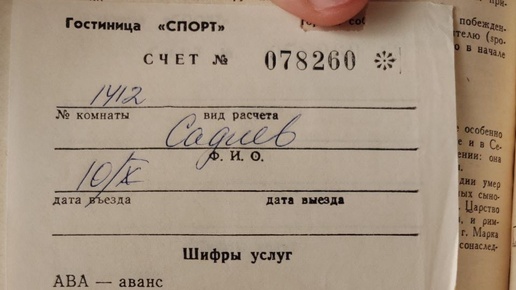 Гостиница «СПОРТ»
СЧЕТ № 078260
1412
№ комнаты вид расчета
Садиев
Ф. И. О.
10/X
дата въезда дата выезда
Шифры услуг
АВА — аванс
побежден-
в начале
особенно
и в Се-
ении: она
дии умер
ных сыно-
Царство
и рим-
г. Марка
сонаслед-